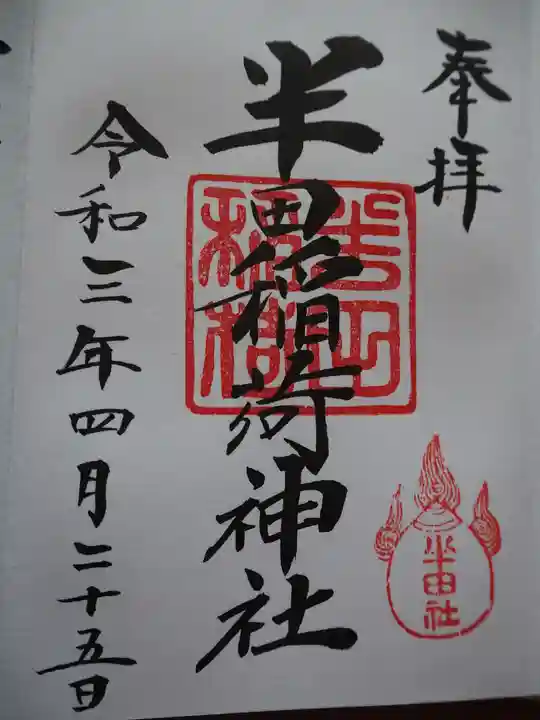 奉拝
半田稲荷神社
半田社
令和三年四月二十五日